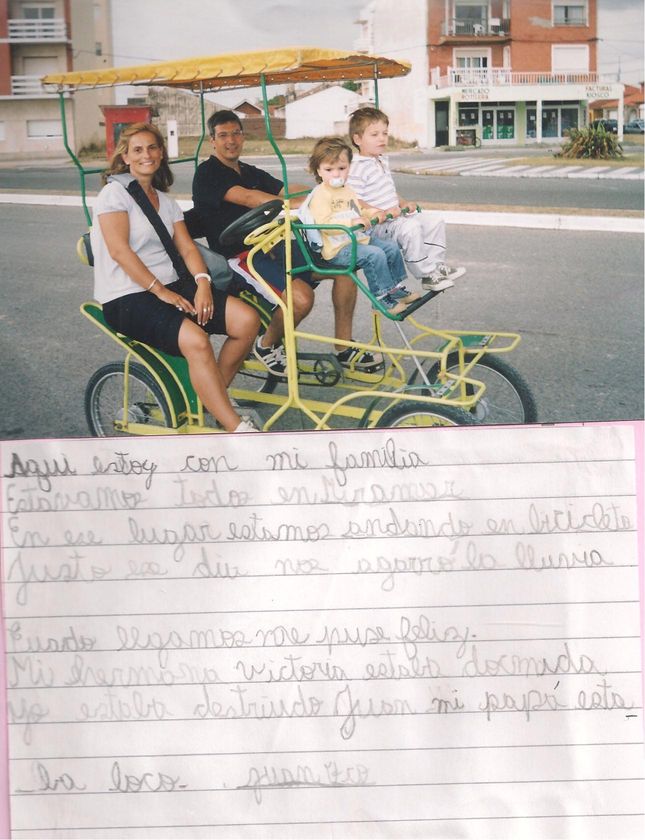 MERCADO
ROTISERIA
FACTURAS
KIOSCO
Aqui estoy con mi familia
Estavamos todos en Miramar
En ese lugar estamos andando en bicicleta
Justo ese dia nos agarró la lluvia
Cuando llegamos me puse feliz.
Mi hermana victoria estaba dormida
yo estaba destruido Juan mi papá esta_
_ba loco.